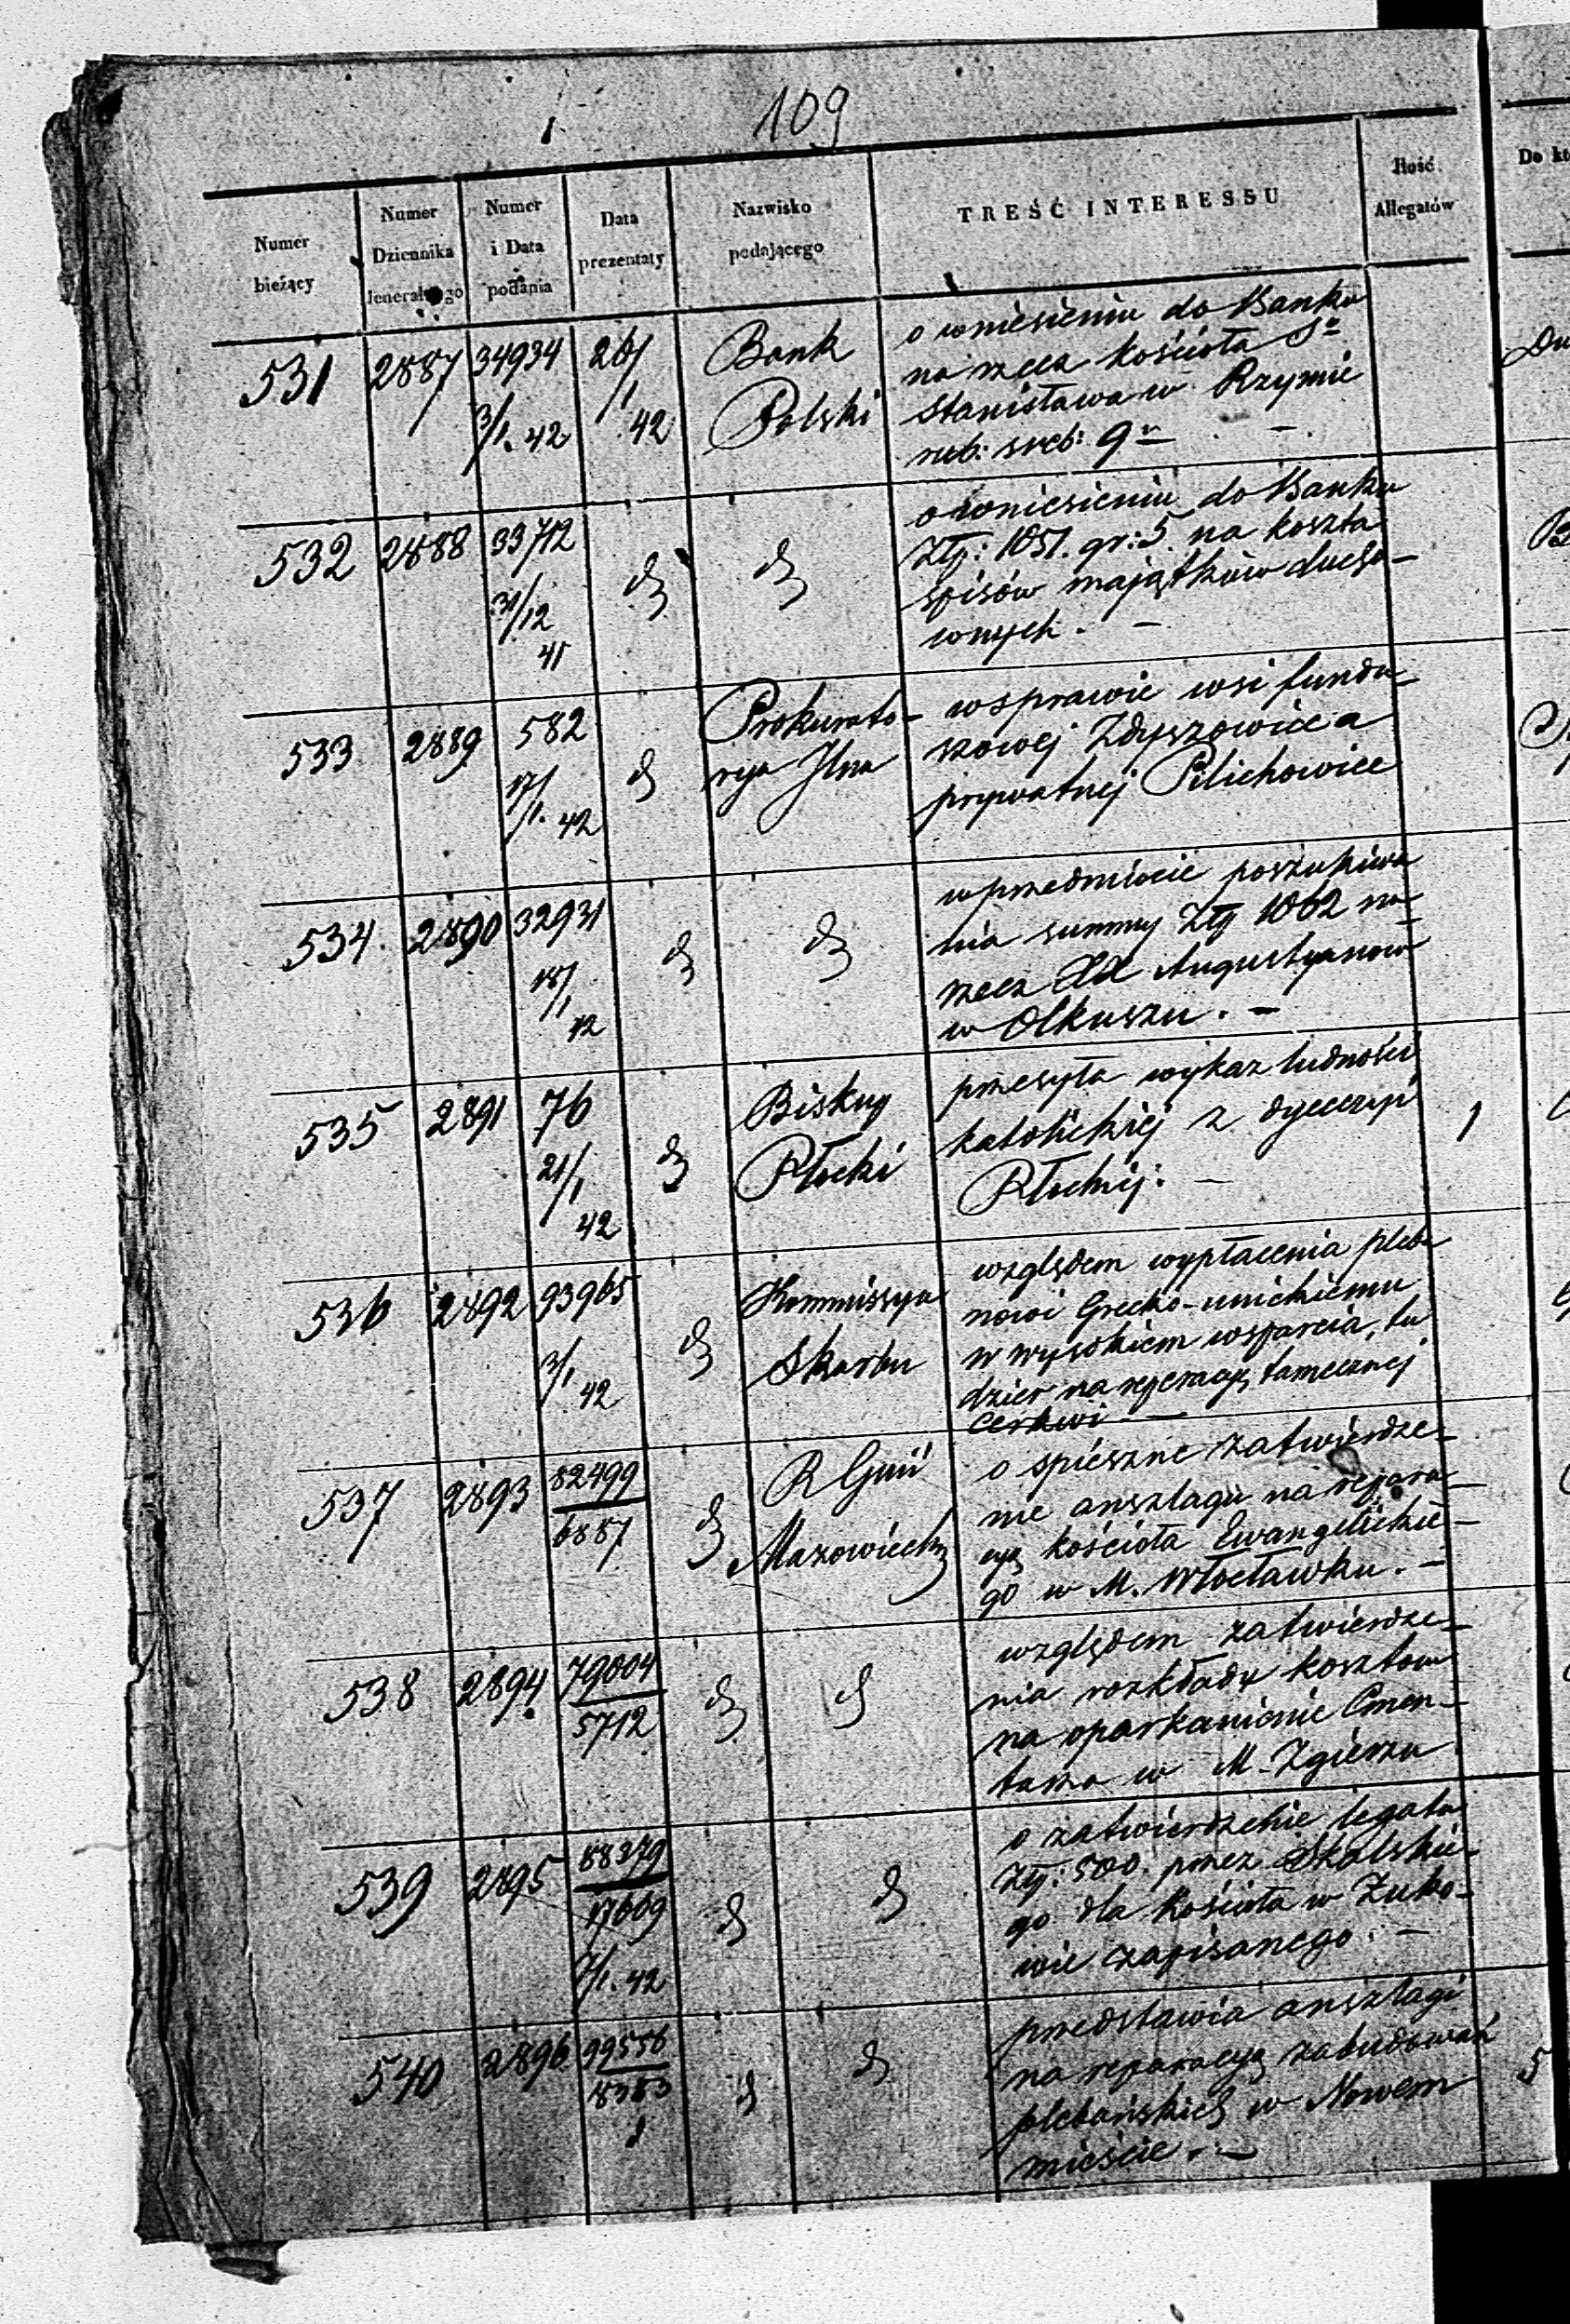 109
Numer bieżący
Numer Dziennika Jeneralnego
Numer i Data podania
Data prezentaty
Nazwisko podającego
TREŚĆ INTERESSU
Ilość Allegatów
531 2887 34934 3/1. 42 26/1 42 Bank Polski
o wniesieniu do Banku
na rzecz kościoła Sgo
Stanisława w Rzymie
rub: sreb: 9
532 2888 33712 31/12 41
o wniesieniu do Banku
Złp: 1051. gr: 5. na koszta
spisów majątków ducho-
wnych. –
533 2889 582 17/1. 42 Prokurato-
rya Jlna
w sprawie wsi fundu-
szowej Zdyszowice a
prywatnej Pilichowice
534. 2890 32931 18/1 42
w przedmiocie poszukiwa-
nia summy Złp 1062 na
rzecz XX Augustyanow
w Olkuszu. –
535 2891 76 21/1 42 Biskup Płocki
przesyła wykaz ludności
katolickiej z dyecezyi
Płockiej. –
1
536 2892 93965 3/1 42 Kommissya Skarbu
względem wypłacenia pleba
nowi Grecko-unickiemu
w Wysokiem wsparcia, tu
dzież na reperacyę tamecznej
cerkwi –
537 2893 82499 6887 R Gub Mazowiecki
o spieszne zatwierdze-
nie anszlagu na repara-
cyę kościoła Ewangelickie-
go w M. Włocławku. –
538 2894. 79004 5712
względem zatwierdze-
nia rozkładu kosztow
na oparkanienie Cmen-
tarza w M. Zgierzu
539 2895 88379 17669 7/1. 42
o zatwierdzenie legatu
Złp: 500. przez Skalskie-
go dla Kościoła w Żuko-
wie zapisanego. –
540 2896 99556 18383
przedstawia anszlagi
na reparacyę zabudowań
plebańskich w Nowem
mieście. –
5